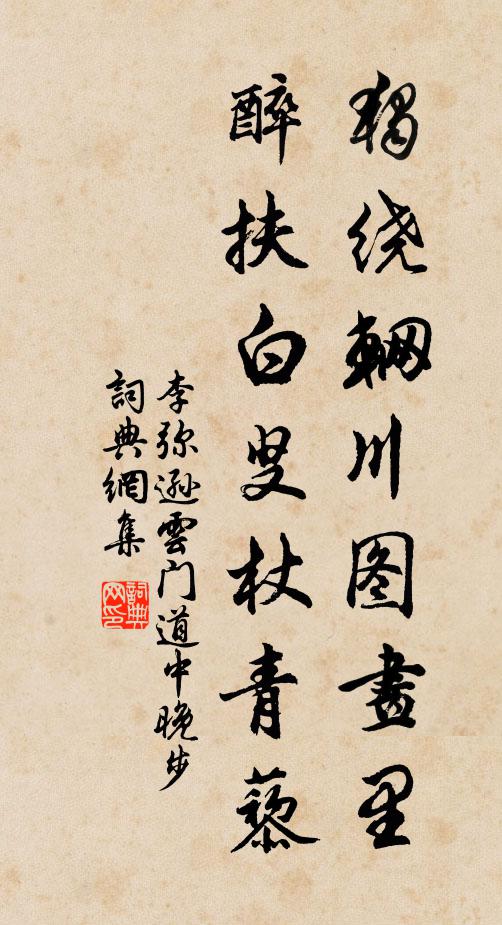 獨绕輞川图畫里
醉扶白叟杖青藜
李弥遜雲门道中晚步
詞典網集
詞典网印